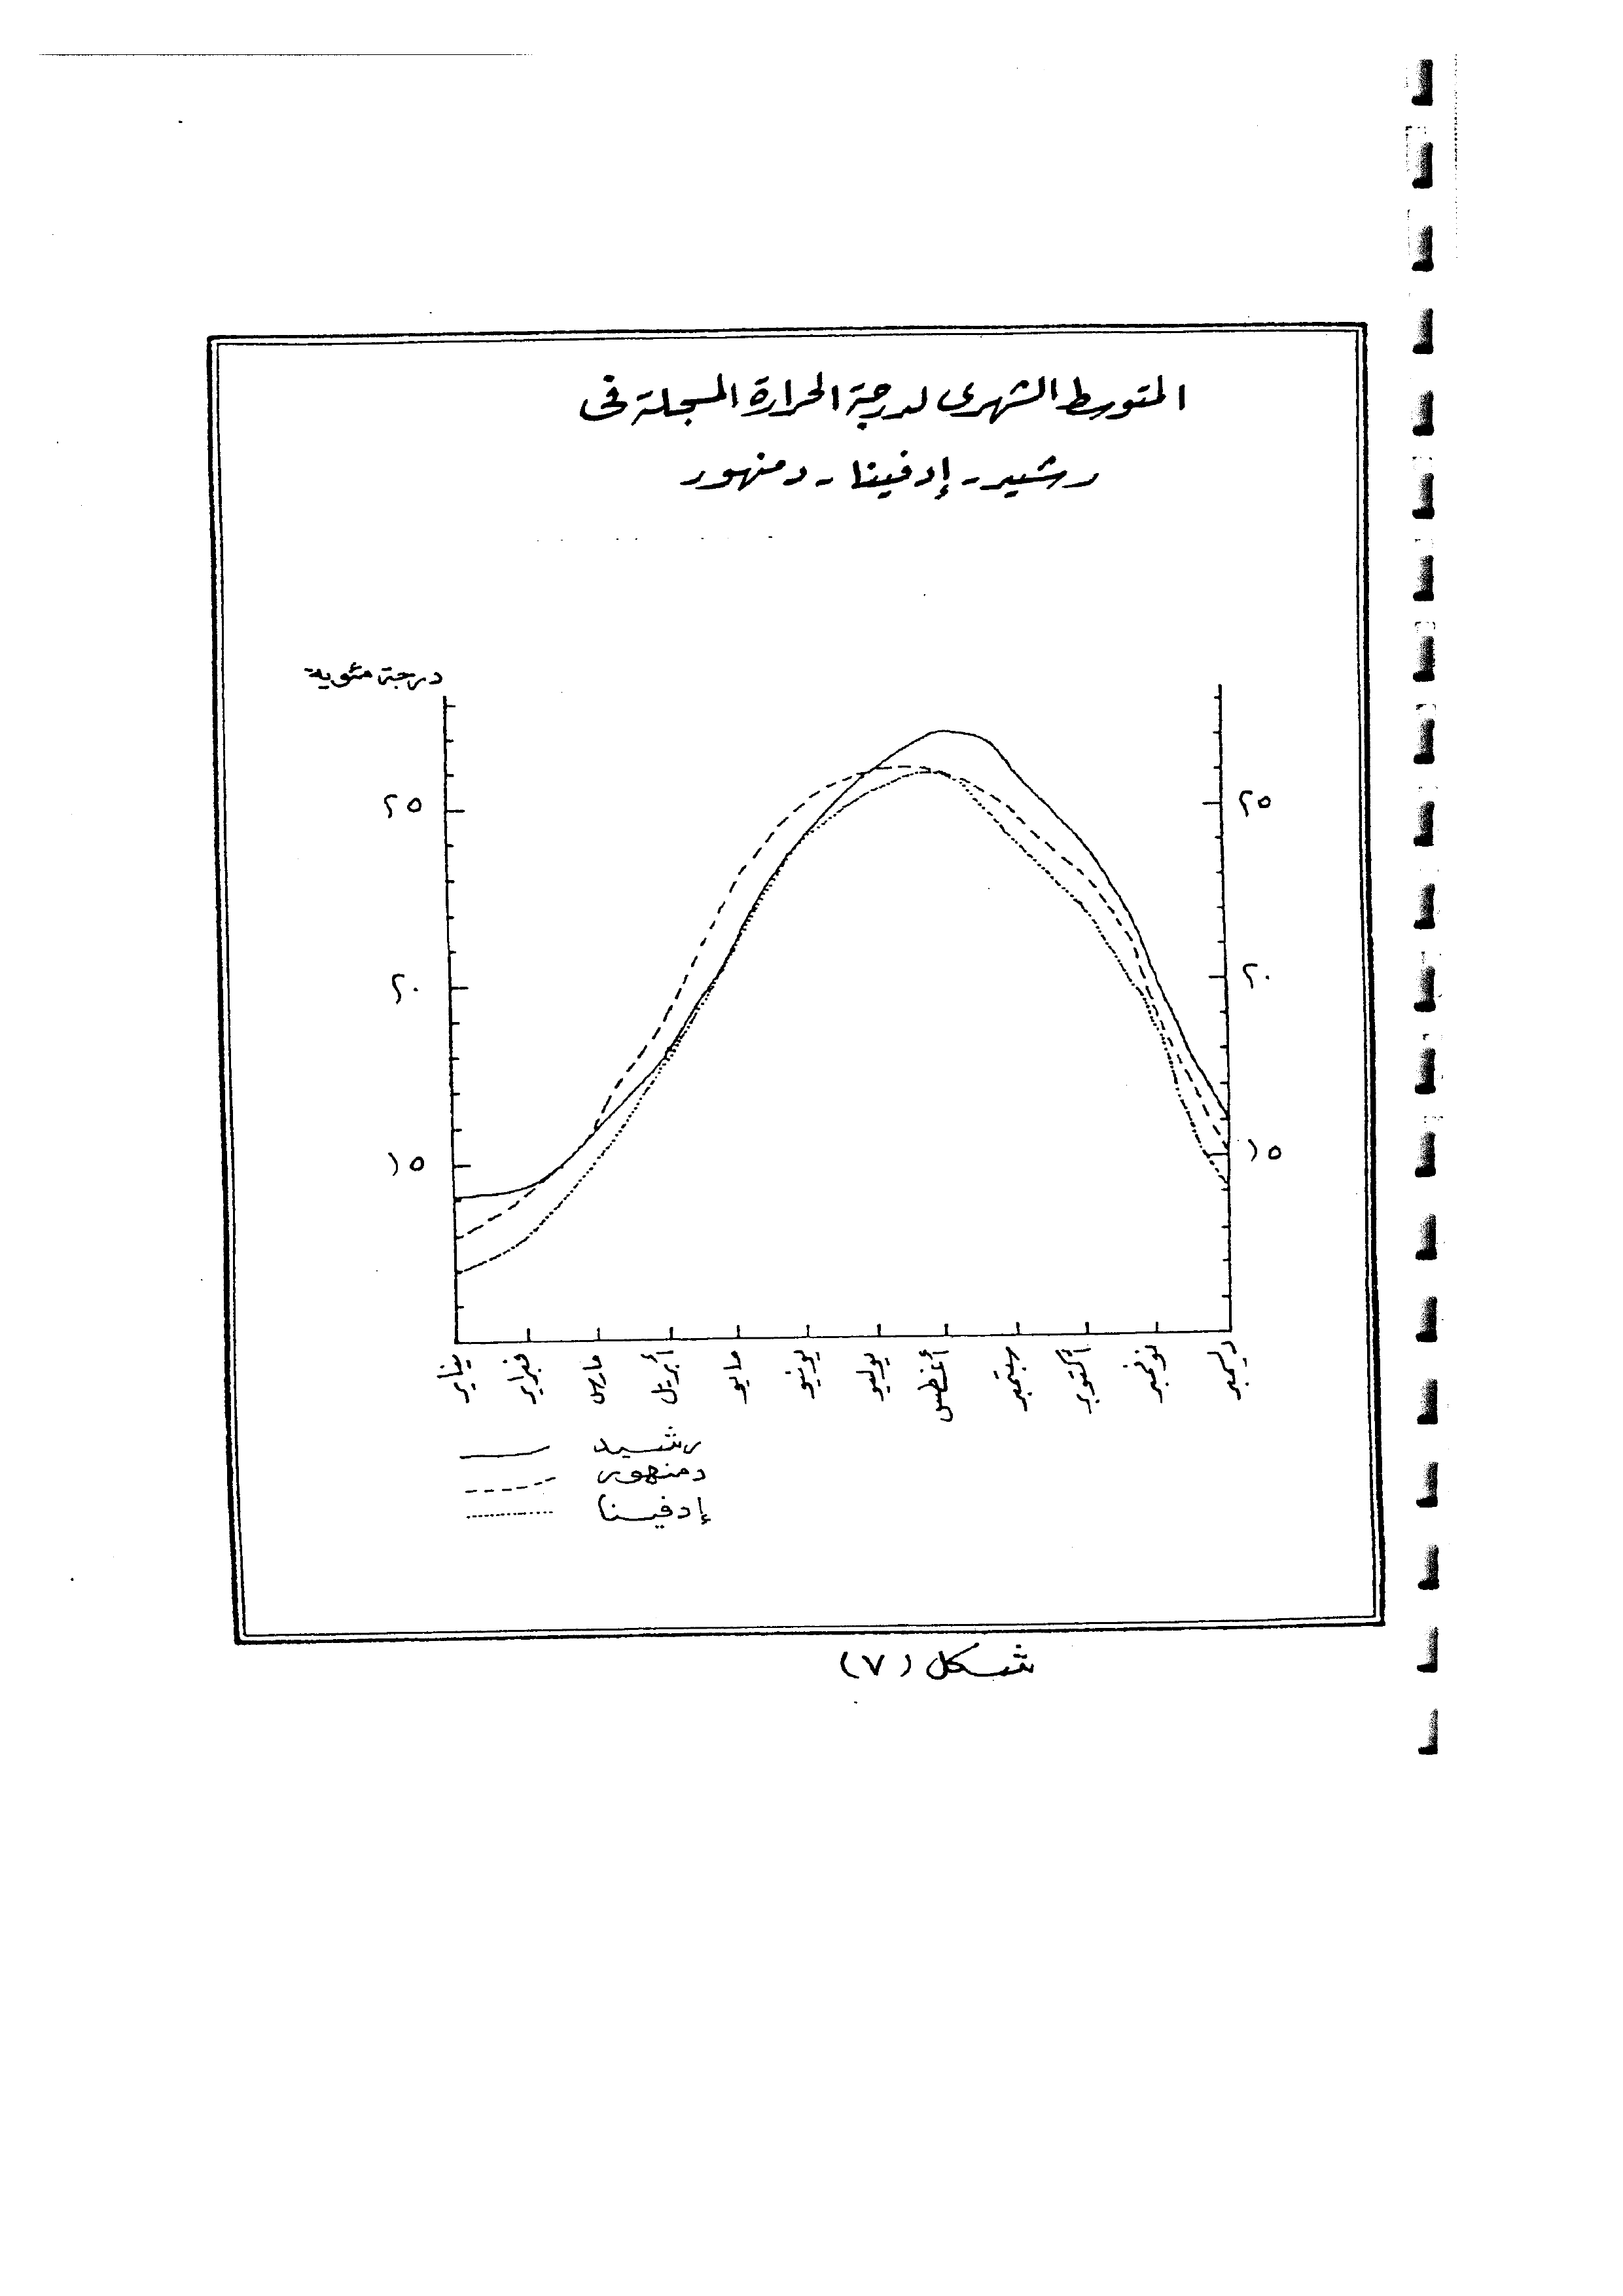 المتوسط الشهرى لدرجة الحرارة المسجلة فى
رشيد - إدفينا - دمنهور
درجة مئوية
٢٥ ٢٥
٢٠ ٢٠
١٥ ١٥
يناير فبراير مارس أبريل مايو يونيو يوليو أغسطس سبتمبر أكتوبر نوفمبر ديسمبر
رشيد
دمنهور
إدفينا
شكل (٧)